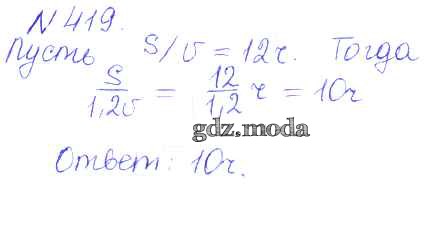 № 419.
Пусть S/υ = 12ч. Тогда
S/1,2υ = 12/1,2 ч = 10ч
gdz.moda
Ответ: 10ч.